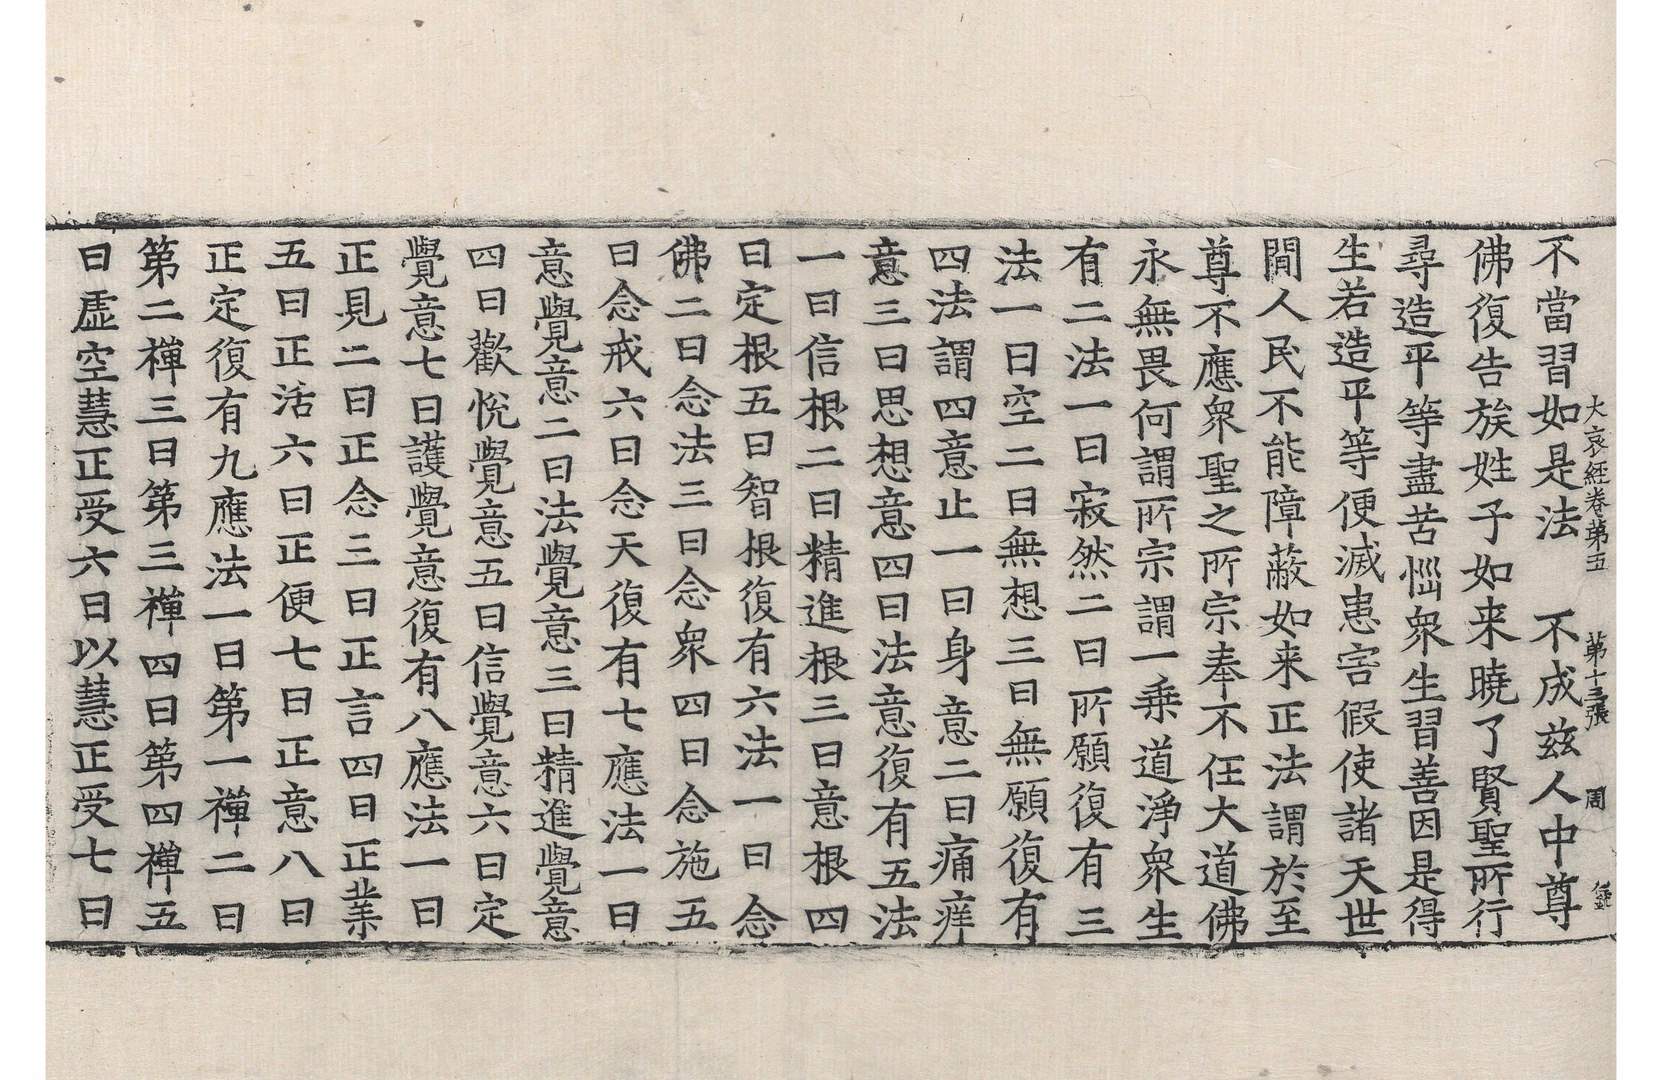 大哀経卷第五 第十三張 周
不當習如是法 不成兹人中尊
佛復告族姓子如来曉了賢聖所行
尋造平等盡苦惱衆生習善因是得
生若造平等便滅恚害假使諸天世
間人民不能障蔽如来正法謂於至
尊不應衆聖之所宗奉不任大道佛
永無畏何謂所宗謂一乗道淨衆生
有二法一曰寂然二曰所願復有三
法一曰空二曰無想三曰無願復有
四法謂四意止一曰身意二曰痛痒
意三曰思想意四曰法意復有五法
一曰信根二曰精進根三曰意根四
曰定根五曰智根復有六法一曰念
佛二曰念法三曰念衆四曰念施五
曰念戒六曰念天復有七應法一曰
意覺意二曰法覺意三曰精進覺意
四曰歡悅覺意五曰信覺意六曰定
覺意七曰護覺意復有八應法一曰
正見二曰正念三曰正言四曰正業
五曰正活六曰正便七曰正意八曰
正定復有九應法一曰第一禪二曰
第二禪三曰第三禪四曰第四禪五
曰虛空慧正受六曰以慧正受七曰